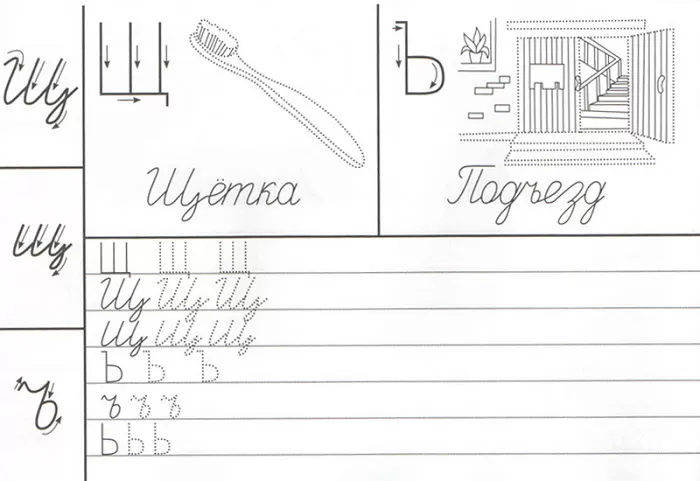 Щ
Щ
Ъ
Щётка
Подъезд
щ
ъ
Щ Щ Щ
Щ Щ Щ
Щ Щ Щ
Ъ Ъ Ъ
ъ ъ ъ
Ъ Ъ Ъ